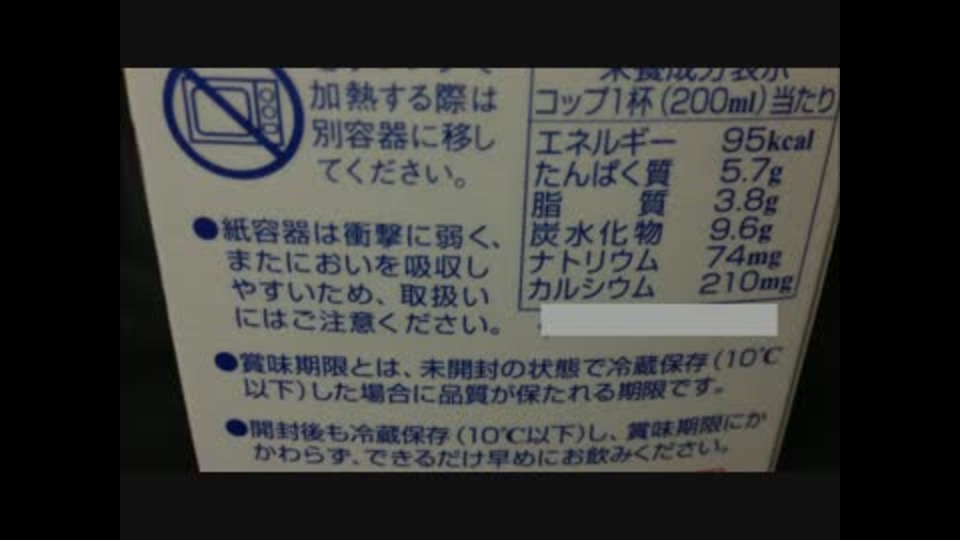 加熱する際は
別容器に移し
てください。
●紙容器は衝撃に弱く、
またにおいを吸収し
やすいため、取扱い
にはご注意ください。
栄養成分表示
コップ1杯(200ml)当たり
エネルギー 95kcal
たんぱく質 5.7g
脂質 3.8g
炭水化物 9.6g
ナトリウム 74mg
カルシウム 210mg
●賞味期限とは、未開封の状態で冷蔵保存(10℃
以下)した場合に品質が保たれる期限です。
●開封後も冷蔵保存(10℃以下)し、賞味期限にか
かわらず、できるだけ早めにお飲みください。